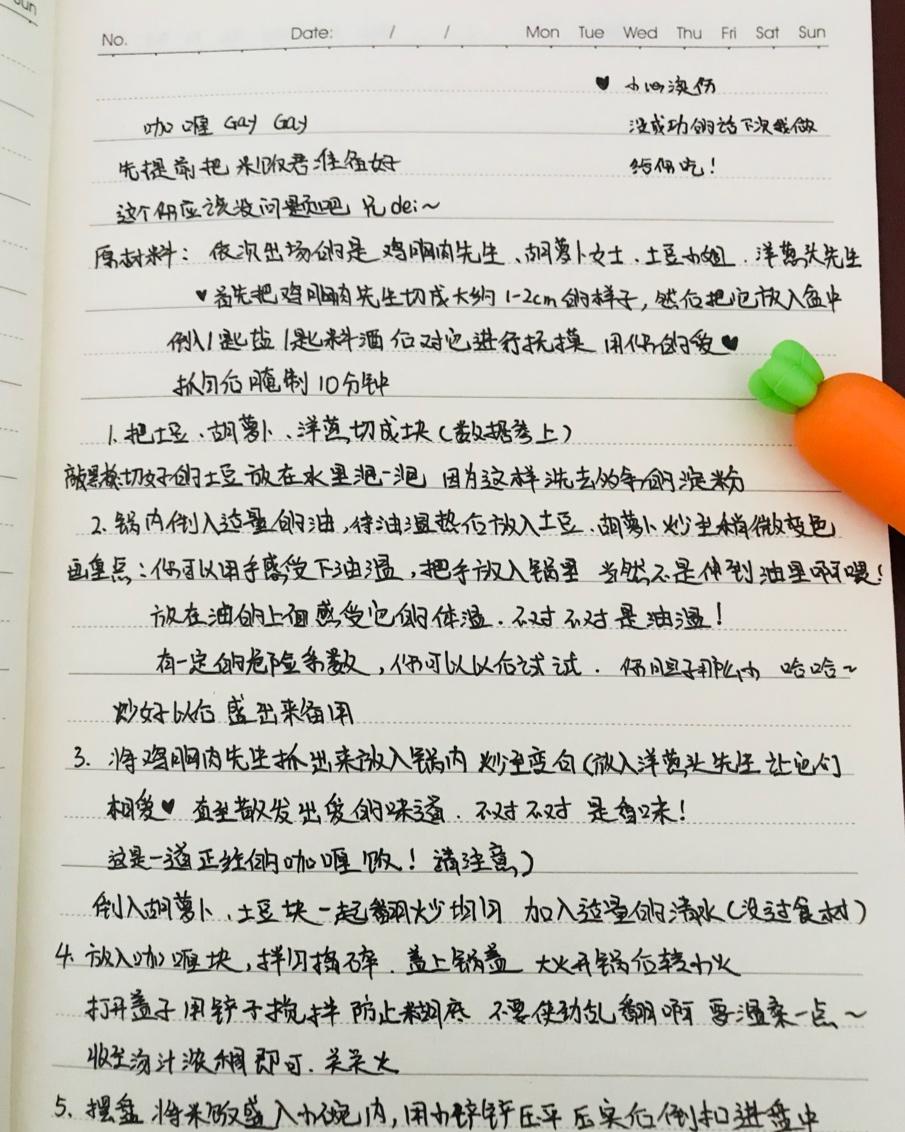 un
No. Date: / / Mon Tue Wed Thu Fri Sat Sun
♥ 小心烫伤
咖喱 Gay Gay
没成功的话下次我做
先提前把米饭君准备好
给你吃！
这个你应该没问题吧 兄dei~
原材料：依次出场的是 鸡胸肉先生、胡萝卜女士、土豆小姐、洋葱头先生
♥首先把鸡胸肉先生切成大约1-2cm的样子，然后把它放入盘中
倒入1匙盐1匙料酒后对它进行抚摸 用你的爱♥
抓匀后腌制10分钟
1.把土豆、胡萝卜、洋葱切成块（数据参上）
敲黑板:切好的土豆放在水里泡一泡 因为这样洗去多余的淀粉
2.锅内倒入适量的油，待油温热后放入土豆、胡萝卜炒至稍微变色
画重点：你可以用手感受下油温，把手放入锅里 当然不是伸到油里啊喂！
放在油的上面感受它的体温．不对不对是油温！
有一定的危险系数，你可以以后试试．你胆子那么小 哈哈~
炒好以后盛出来备用
3. 将鸡胸肉先生抓出来放入锅内 炒至变白（放入洋葱头先生 让它们
相爱♥ 直至散发出爱的味道．不对不对 是香味！
这是一道正经的咖喱饭！请注意）
倒入胡萝卜、土豆块一起翻炒均匀 加入适量的清水（没过食材）
4. 放入咖喱块，拌匀捣碎．盖上锅盖 大火开锅后转小火
打开盖子用铲子搅拌 防止糊底 不要使劲乱翻啊 要温柔一点~
收至汤汁浓稠即可．关关火
5. 摆盘 将米饭盛入小碗内，用小铲铲压平压实后倒扣进盘中